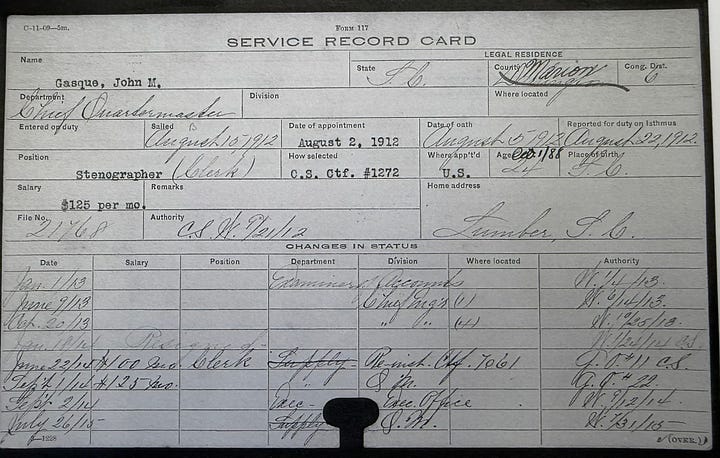 C-11-09—5m. FORM 117
SERVICE RECORD CARD
LEGAL RESIDENCE
Name State County Cong. Dist.
Gasque, John M. S.C. Marion 6
Department Division Where located
Chief Quartermaster
Entered on duty Sailed Date of appointment Date of oath Reported for duty on Isthmus
August 15, 1912 August 2, 1912 August 5-1912 August 22, 1912.
Position How selected Where app't'd Age Place of birth
Stenographer (Clerk) C.S. Ctf. #1272 U.S. 24 Oct. 1/88 S.C.
Salary Remarks Home address
$125 per mo.
File No. Authority
21768 C.S. W. 9/21/12 Lumber, S.C.
CHANGES IN STATUS
Date Salary Position Department Division Where located Authority
Jan. 1/13 Examiner Accounts W. 1/4/13.
June 9/13 Chief Eng'r (1) W. 6/14/13.
Oct. 20/13 " " (4) W. 10/25/13.
Resigned C.S.
June 22/14 $100 mo Clerk Supply Reinst. Ctf. 7061 G.O. #11 C.S.
Sept. 1/14 $125 mo. " Q.M. #22.
Sept. 2/14 Exec. Exec. Office W. 9/12/14
July 26/15 Supply Q.M. W. 7/31/15
P-1228 (OVER.)